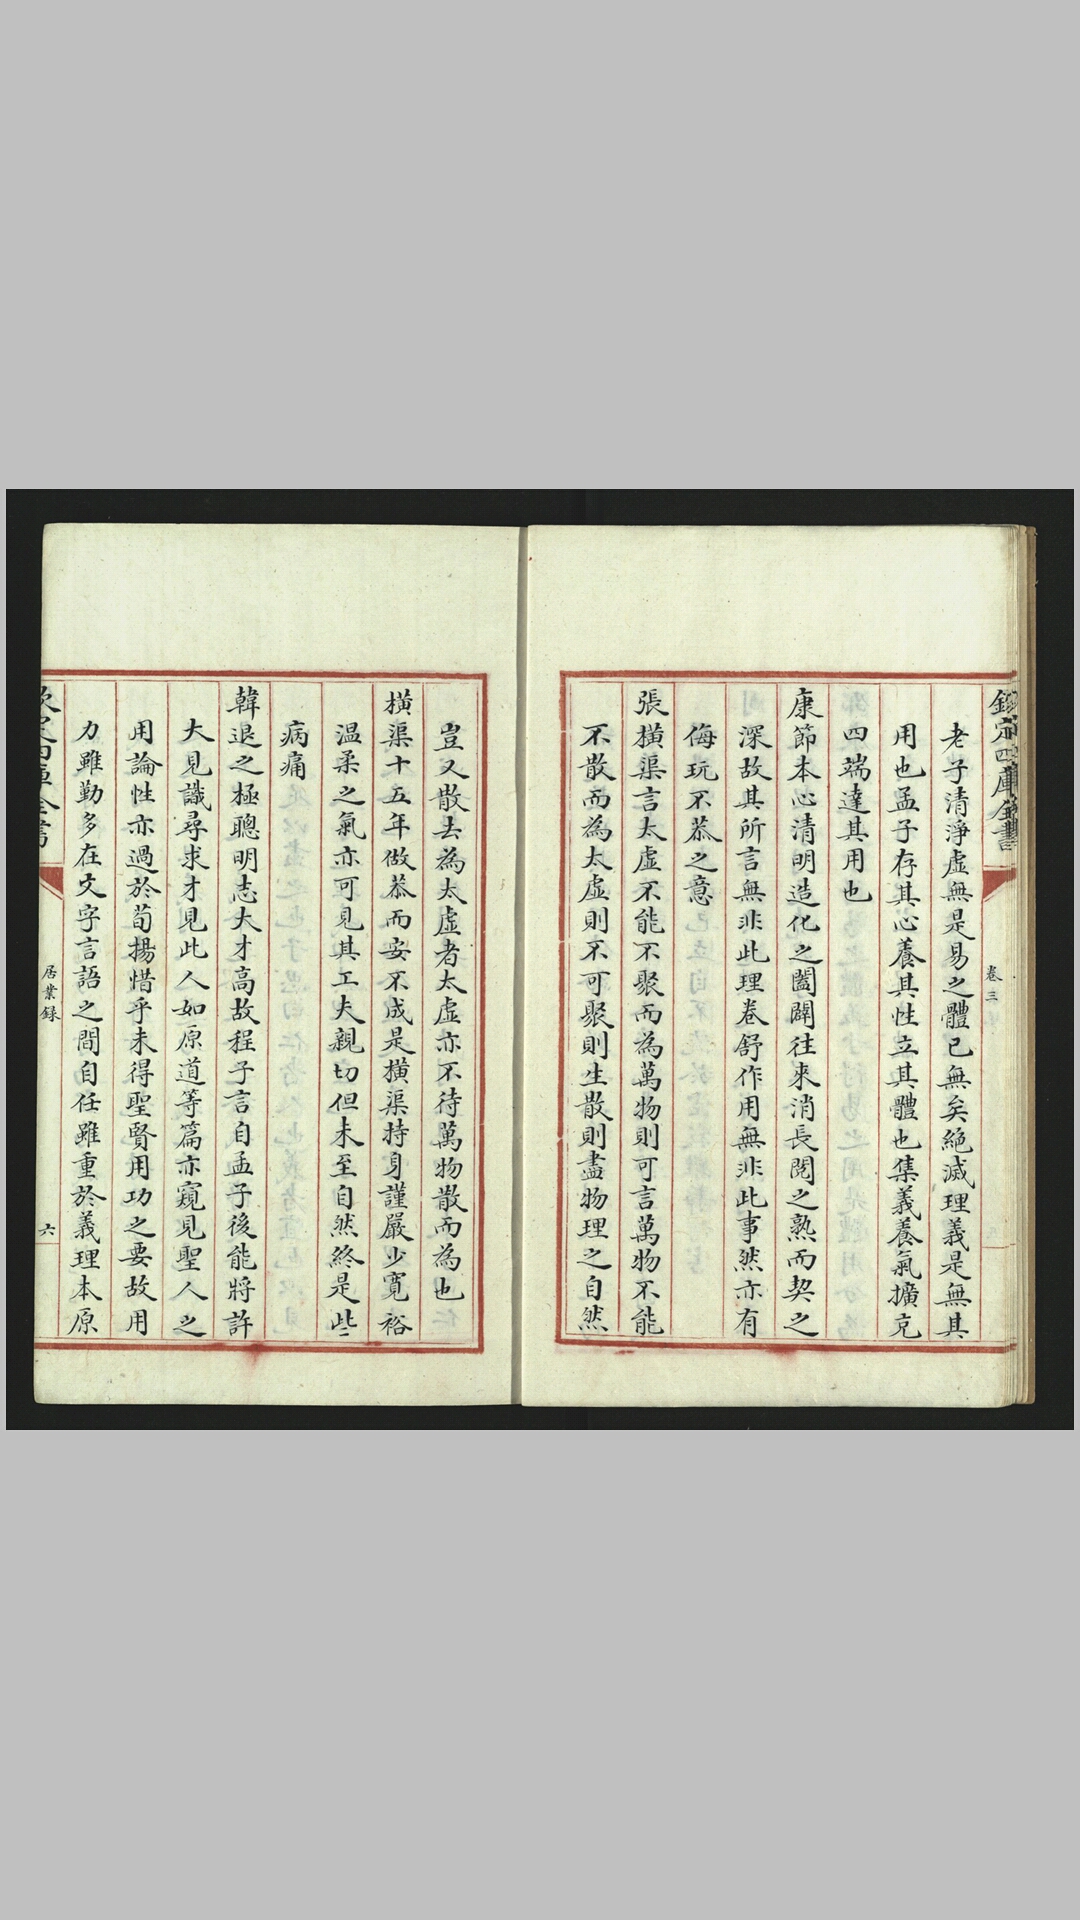 欽定四庫全書
卷三
老子清淨虛無是易之體已無矣絕滅理義是無其
用也孟子存其心養其性立其體也集義養氣擴充
四端達其用也
康節本心清明造化之闔闢往來消長閱之熟而契之
深故其所言無非此理卷舒作用無非此事然亦有
侮玩不恭之意
張橫渠言太虛不能不聚而為萬物則可言萬物不能
不散而為太虛則不可聚則生散則盡物理之自然
豈又散去為太虛者太虛亦不待萬物散而為也
橫渠十五年做恭而安不成是橫渠持身謹嚴少寬裕
温柔之氣亦可見其工夫親切但未至自然終是些
病痛
韓退之極聰明志大才高故程子言自孟子後能將許
大見識尋求才見此人如原道等篇亦窺見聖人之
用論性亦過於荀揚惜乎未得聖賢用功之要故用
力雖勤多在文字言語之間自任雖重於義理本原
欽定四庫全書
居業録
六